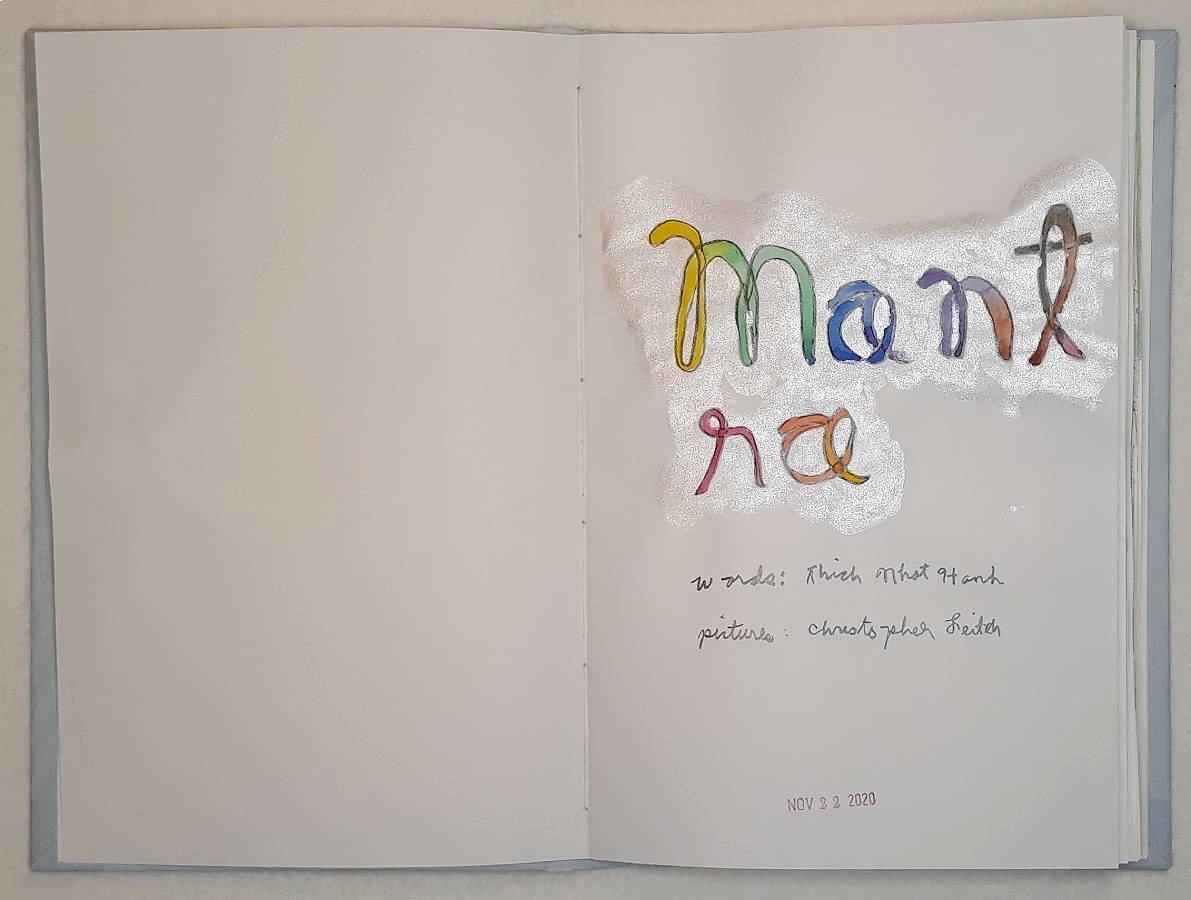 mant
ra
words: Thich Nhat Hanh
pictures: Christopher Leitch
NOV 22 2020